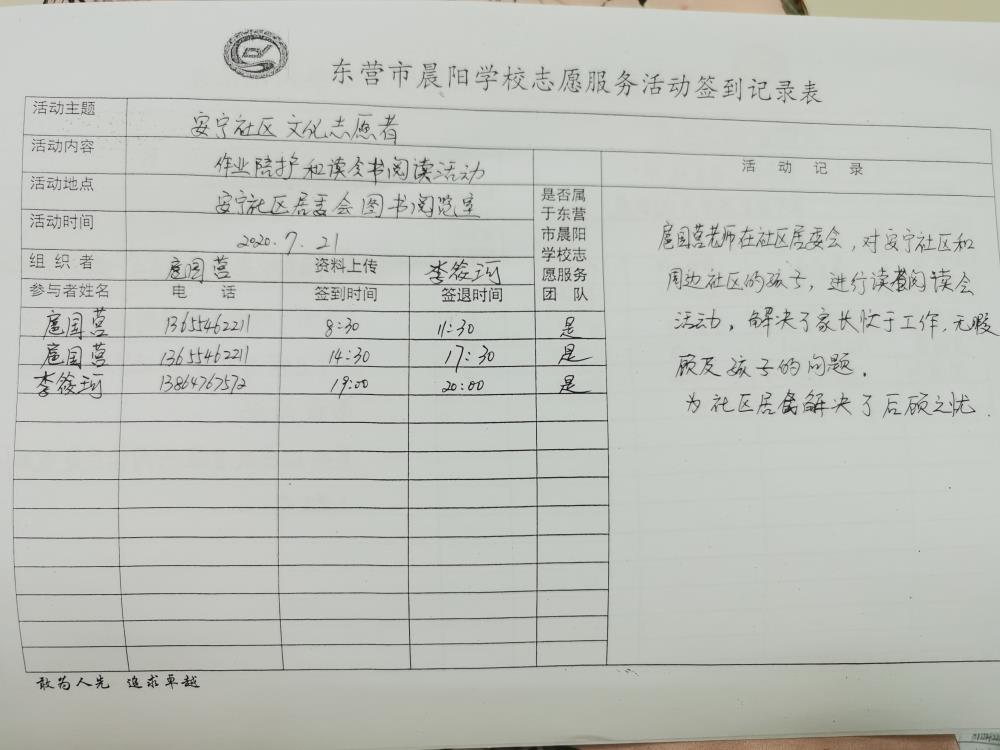 东营市晨阳学校志愿服务活动签到记录表
活动主题 安宁社区文化志愿者
活动内容 作业陪护和读会书阅读活动
活动地点 安宁社区居委会图书阅览室
活动时间 2020.7.21
组织者 扈国营 资料上传 李筱珂
参与者姓名 电话 签到时间 签退时间
是否属
于东营
市晨阳
学校志
愿服务
团队
扈国营 13655462211 8:30 11:30 是
扈国营 13655462211 14:30 17:30 是
李筱珂 13864767572 19:00 20:00 是
活动记录
扈国营老师在社区居委会,对安宁社区和
周边社区的孩子,进行读书阅读会
活动,解决了家长忙于工作,无暇
顾及孩子的问题.
为社区居解决了后顾之忧.
敢为人先 追求卓越